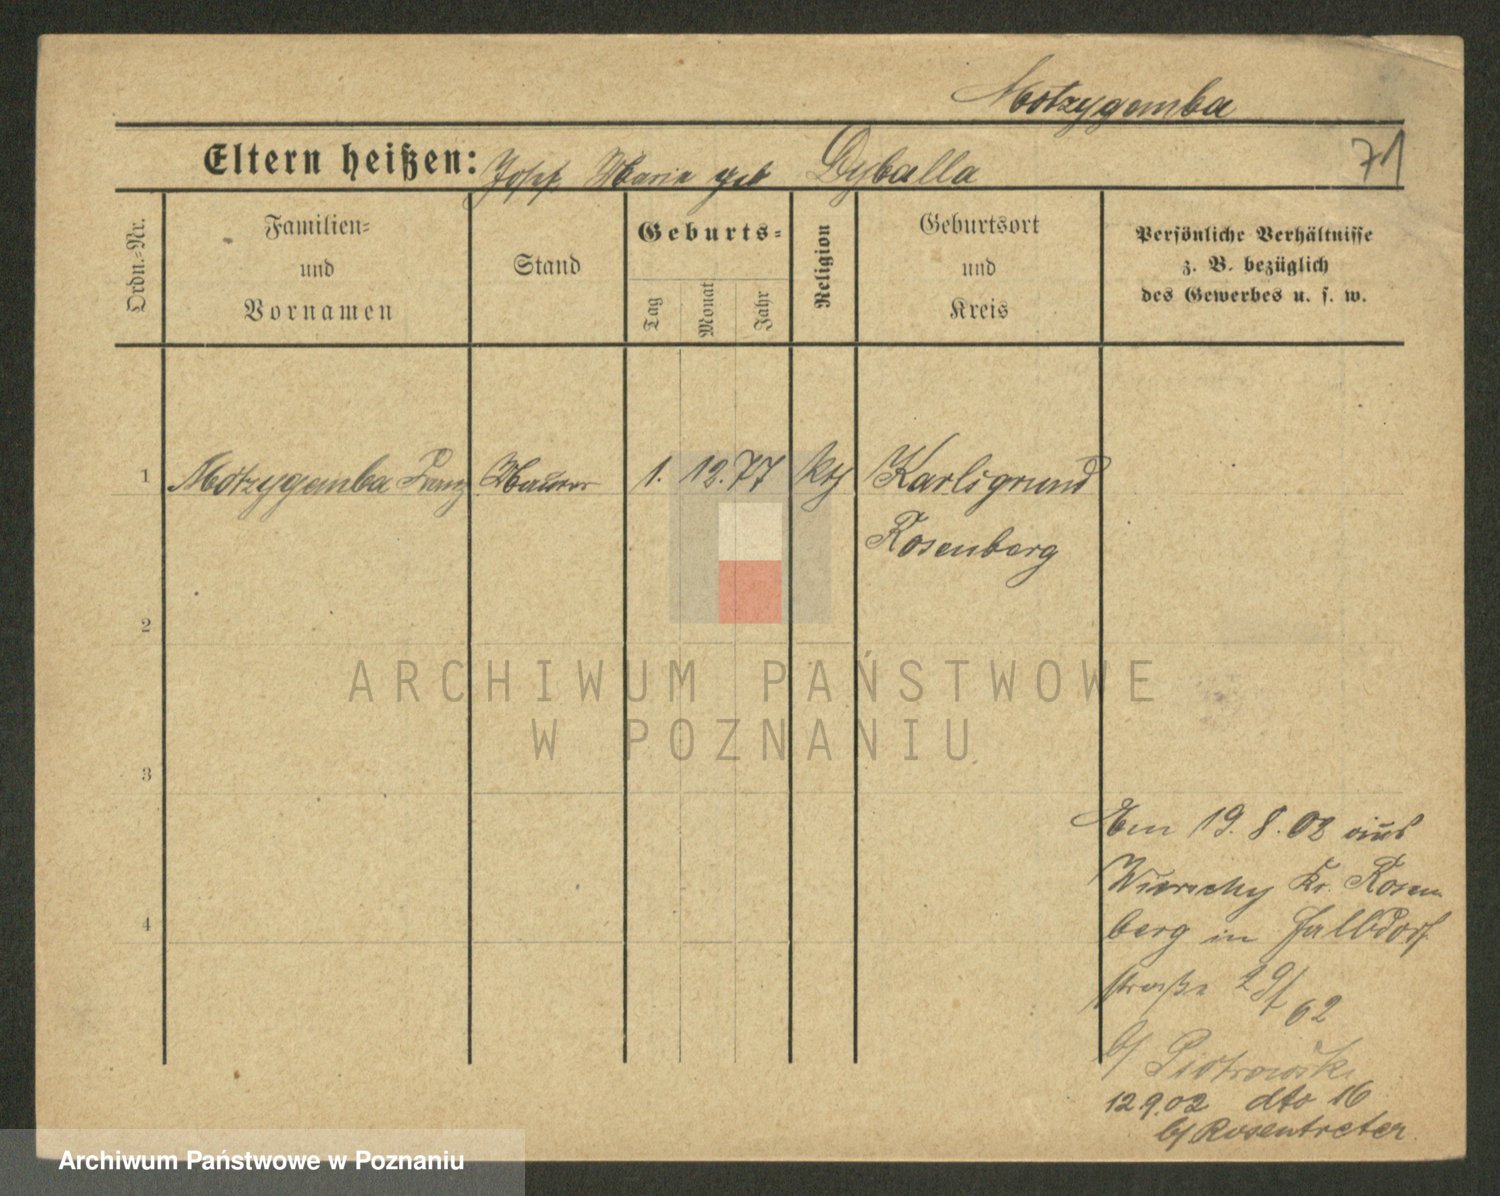 Motzygemba
Eltern heißen: Josef Maria geb Dyballa
71
Ordn.-Nr.
Familien-
und
Vornamen
Stand
Geburts-
Tag
Monat
Jahr
Religion
Geburtsort
und
Kreis
Persönliche Verhältnisse
z. B. bezüglich
des Gewerbes u. s. w.
1 Motzygemba Franz Maurer 1. 12. 77 kth Karlsgrund
Rosenberg
2
3
4
Am 19. 8. 02 aus
Kr. Rosen
berg in Halbdorf
straße 29/
62
b/ Piotrowski
12 9.02 dto 16
b/ Rosentreter
ARCHIWUM PAŃSTWOWE
W POZNANIU
Archiwum Państwowe w Poznaniu